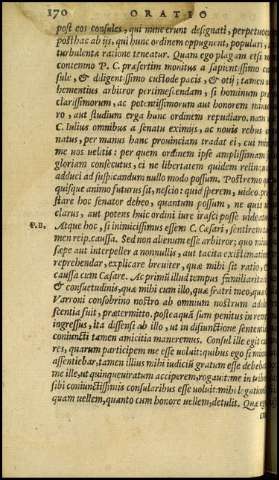 170 ORATIO
post eos consules, qui nunc erunt designati, perpetuoq́
posthac ab ijs, qui hunc ordinem oppugnent, populari, ac
turbulenta ratione teneatur. Quam ego plagam etsi non
contemno P. C. præsertim monitus à sapientissimo con
sule, & diligentissimo custode pacis, & otij; tamen
hementius arbitror pertimescendam, si hominum
clarissimorum, ac potentissimorum aut honorem minuero
ro, aut studium erga hunc ordinem repudiaro. nam
C. Iulius omnibus a senatu eximijs, ac nouis rebus
natus, per manus hanc prouinciam tradat ei, cui minime
me uos uelitis: per quem ordinem ipse amplissimam
gloriam consecutus, ei ne libertatem quidem relinquat,
adduci ad suspicandum nullo modo possum. Postremo
quisque animo futurus sit, nescio: quid sperem, uideo.
stare hoc senator debeo, quantum possum, ne quis
clarus, aut potens huic ordini iure irasci posse uideatur.
P.II. Atque hoc, si inimicissimus essem C. Cæsari, sentirem
men reip. caussa. Sed non alienum esse arbitror; quo minus
sæpe aut interpeller a nonnullis, aut tacita existimatione
reprehendar, explicare breuiter, quæ mihi sit ratio,
caussa cum Cæsare. Ac primum illud tempus familiaritatis
& consuetudinis, quæ mihi cum illo, quæ fratri meo, quæ
Varroni consobrino nostro ab omnium nostrum adole
scentia fuit, prætermitto. posteaquã sum penitus in remp.
ingressus, ita dissensi ab illo, ut in disiunctione sententiæ
coniuncti tamen amicitia maneremus. Consul ille egit eas
res, quarum participem me esse uoluit: quibus ego si minus
assentiebar, tamen illius mihi iudiciũ gratum esse debebat.
me ille, ut quinqueuiratum acciperem, rogauit: me in tribus
sibi coniunctissimis consularibus esse uoluit: mihi legationem
quam uellem, quanto cum honore uellem, detulit. Quæ ego